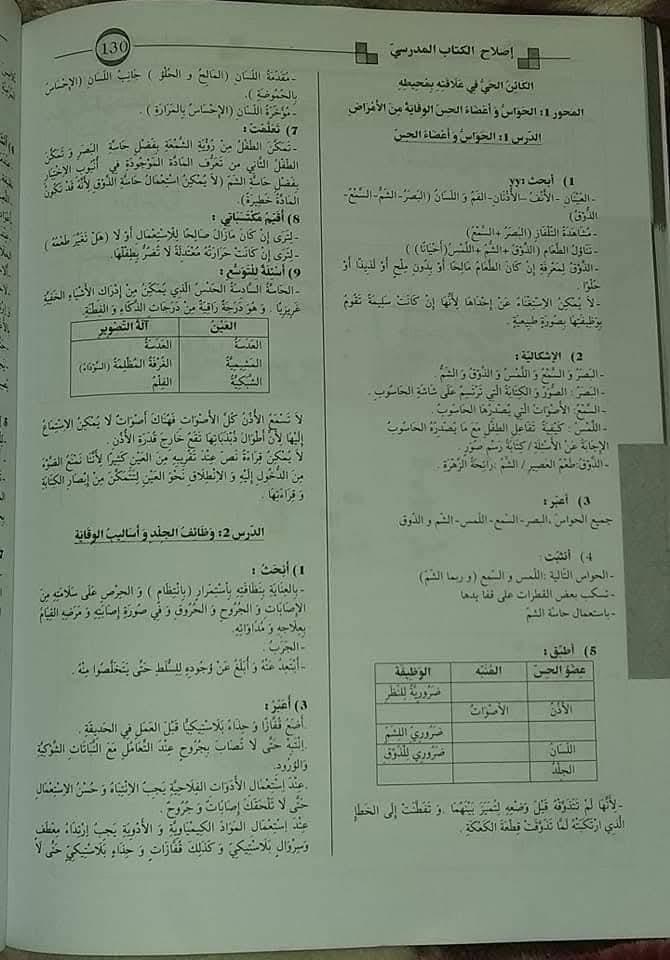 130
إصلاح الكتاب المدرسي
الكائن الحيّ في علاقته بمحيطه
المحور 1: الحَوَاسّ وَ أعْضَاءُ الحِسّ الوِقَايَة مِنَ الأمْرَاض
الدّرس 1: الحَوَاسّ وَ أعْضَاءُ الحِسّ
1) أبحث: yy
-العَيْنَانِ -الأنْفُ-الأُذْنَانِ-الفَمُ وَ اللسَانُ (البَصَرُ-الشَم-السَّمْعُ-
الذَّوْقُ)
- مُشَاهَدَةُ التِلْفَازِ (البَصَرُ +السَّمْعُ)
- تَنَاوُلُ الطَّعَامِ (الذَّوْقُ +الشَّم +اللَّمْسُ(أحْيَانًا) )
- الذَّوْقُ لِمَعْرِفَةِ إنْ كَانَ الطَّعَامُ مَالِحًا أوْ بِدُونِ مِلْحٍ أوْ لَذِيذًا أوْ
حُلْوًا .
-لاَ يُمْكِنُ الاِسْتِغْنَاءُ عَنْ إحْدَاهَا لِأنَّهَا إنْ كَانَتْ سَلِيمَةً تَقُومُ
بِوَظِيفَتِهَا بِصُورَةٍ طَبِيعِيَّةٍ .
2) الإشكاليّة :
- البَصَرُ وَ السَّمْعُ وَ اللَّمْسُ وَ الذَّوْقُ وَ الشَّمُّ .
- البَصَرُ : الصُّوَرُ وَ الكِتَابَةُ الّتي تَرْتَسِمُ عَلَى شَاشَةِ الحَاسُوبِ .
- السَّمْعُ: الأصْوَاتُ الّتي يُصْدِرُهَا الحَاسُوبُ .
- اللَّمْسُ : كَيْفِيَّةُ تَفَاعُلِ الطِّفْلِ مَعَ مَا يُصْدِرُهُ الحَاسُوبُ
الإجَابَةُ عَنْ الأسْئِلَةِ / كِتَابَةُ رَسْمِ صُوَرٍ .
- الذَّوْقُ:طَعْمُ العَصِيرِ / الشَّمُّ :رَائِحَةُ الزَّهْرَة .
3) أعبّر :
جميع الحواس ،البصر-السمع-اللمس-الشّم و الذوق
4) أتثبّت :
-الحواس التالية :اللمس و السمع (و ربما الشّم)
-تسكب بعض القطرات على قفا يدها
-باستعمال حاسّة الشمّ
5) أطبّق :
عُضْوُ الحِسّ المُنَبّه الوَظِيفَة
ضَرُورِيَّةٌ لِلنَّظَرِ
الأُذُنُ الأصْوَاتُ
ضَرُورِيّ لِلشَمِّ
اللسَانُ ضَرُورِيّ لِلذَّوْقِ
الجِلْدُ
-لأنَّهَا لَمْ تَتَذَوَّقْهُ قَبْلَ وَضْعِهِ لِتُمَيِّزَ بَيْنَهُمَا .وَ تَفَطَّنَتْ إلَى الخَطَإ
الّذي ارْتَكَبَتْهُ لَمَّا تَذَوَّقَتْ قِطْعَةَ الكَعْكَة .
- مُقَدِّمَةُ اللِّسَانِ (المَالِحُ وَ الحُلْوُ ) جَانِبُ اللِّسَانِ (الإحْسَاسُ
بِالحُمُوضَةِ) .
- مُؤَخِّرَةُ اللِّسَانِ (الإحْسَاسُ بِالمَرَارَةِ ) .
7) تَعَلَّمْتُ :
- تَمَكَّنَ الطِّفْلُ مِنْ رُؤْيَةِ الشَّمْعَةِ بِفَضْلِ حَاسَّةِ البَصَرِ وَ تَمَكَّنَ
الطِّفْلُ الثَّاني مِن تَعَرُّفِ المَادَّةِ المَوْجُودَةِ في أُنْبُوبِ الاخْتِبَارِ
بِفَضْلِ حَاسَّةِ الشَمّ (لاَ يُمْكِنُ اسْتِعْمَالُ حَاسَّةِ الذَّوْقِ لأنَّهُ قَدْ تَكُونُ
المَادَّةُ خَطِيرَةً).
8) أُقَيِّمُ مُكْتَسَبَاتِي :
-لِتَرَى إنْ كَانَ مَازَالَ صَالِحًا لِلاِسْتِعْمَالِ أوْ لاَ (هَلْ تَغَيَّرَ طَعْمُهُ )
-لِتَرَى إنْ كَانَتْ حَرَارَتُهُ مُعْتَدِلَةً لاَ تَضُرُّ بِطِفْلِهَا.
9) أسْئِلَةٌ لِلتَوَسُّعِ :
-الحَاسَّةُ السَّادِسَةُ الحَدْسُ الّذِي يُمَكِّنُ مِنْ إدْرَاكِ الأشْيَاءِ الخَفِيَّةِ
غَرِيزِيًّا . وَ هُوَ دَرَجَةٌ رَاقِيَةٌ مِنْ دَرَجَاتِ الذَّكَاءِ وَ الفِطْنَةِ.
العَيْنُ آلَةُ التَّصْوِيرِ
العَدَسَةُ العَدَسَةُ
المَشِيمِيَّةُ الغُرْفَةُ المُظْلِمَةُ (السَّوْدَاءُ)
الشَّبَكِيَّةُ الفِلْمُ
لاَ تَسْمَعُ الأُذُنُ كُلَّ الأصْوَاتِ فَهُنَاكَ أصْوَاتٌ لاَ يُمْكِنُ الاِسْتِمَاعُ
إلَيْهَا لأنَّ أطْوَالَ ذَبْذَبَاتِهَا تَقَعُ خَارِجَ قُدْرَةِ الأُذُنِ .
لاَ يُمْكِنُ قِرَاءَةُ نَصّ عِنْدَ تَقْرِيبِهِ مِنَ العَيْنِ كَثِيرًا لأنَّنَا نَمْنَعُ الضَّوْءَ
مِنَ الدُّخُولِ إلَيْهِ وَ الاِنْطِلاَقِ نَحْوَ العَيْنِ لِتَتَمَكَّنَ مِنْ إبْصَارِ الكِتَابَةِ
وَ قِرَاءَتِهَا .
الدّرس 2: وَظَائِفُ الجِلْدِ وَ أسَالِيبُ الوِقَايَةِ
1) أبْحَثُ :
-بِالعِنَايَةِ بِنَظَافَتِهِ بِاسْتِمْرَارٍ (بِانْتِظَامٍ ) وَ الحِرْصِ عَلَى سَلاَمَتِهِ مِنَ
الإصَابَاتِ وَ الجُرُوحِ وَ الحُرُوقِ وَ في صُورَةِ إصَابَتِهِ وَ مَرَضِهِ القِيَامُ
بِعِلاَجِهِ وَ مُدَاوَاتِهِ.
-الجَرَبُ .
-أبْتَعِدُ عَنْهُ وَ أُبْلِغُ عَنْ وُجُودِهِ لِلسُّلَطِ حَتَّى يَتَخَلَّصُوا مِنْهُ .
3) أُعَبِّرُ :
.أضَعُ قُفَّازًا وَ حِذَاءً بَلاَسْتِيكِيًّا قَبْلَ العَمَلِ في الحَدِيقَةِ .
.اِنْتَبِهْ حَتَّى لاَ تُصَابَ بِجُرُوحٍ عِنْدَ التَّعَامُلِ مَعَ النَّبَاتَاتِ الشَّوْكِيَّةِ
وَالوُرُودِ.
.عِنْدَ اِسْتِعْمَالِ الأدَوَاتِ الفِلاَحِيَّةِ يَجِبُ الاِنْتِبَاهُ وَ حُسْنُ الاِسْتِعْمَالِ
حَتَّى لاَ تَلْحَقَكَ إصَابَاتٌ وَ جُرُوحٌ .
عِنْدَ اِسْتِعْمَالِ المَوَادِّ الكِيمْيَاوِيَّةِ وَ الأدْوِيَةِ يَجِبُ اِرْتِدَاءُ مِعْطَفٍ
وَسِرْوَالٍ بَلاَسْتِيكِيّ وَ كَذَلِكَ قُفَّازَاتٍ وَ حِذَاءٍ بَلاَسْتِيكِيّ حَتَّى لاَ